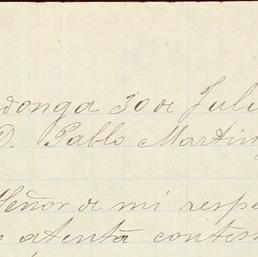 adonga 30 de Juli
D. Pablo Martin
Señor de mi respe
atenta contes